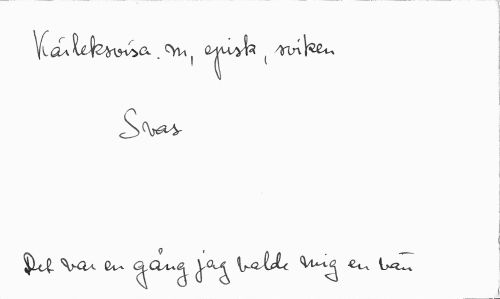 Kärleksvisa. m, episk, sviken
Svas
Det var en gång jag valde mig en vän